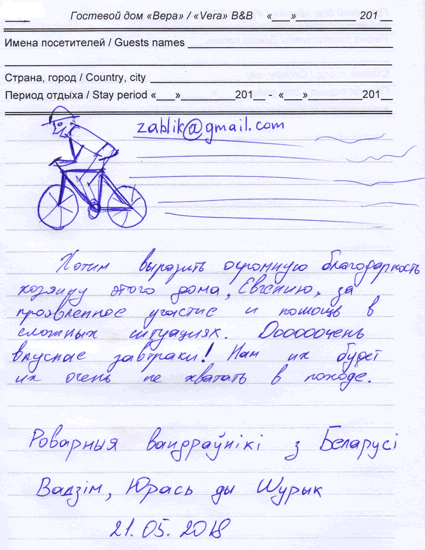 Гостевой дом «Вера» / «Vera» B&B «___»__________201__
Имена посетителей / Guests names
Страна, город / Country, city
Период отдыха / Stay period «___»__________201__ - «___»__________201__
zablik@gmail.com
Хотим выразить огромную благодарность
хозяину этого дома, Евгению, за
проявленное участие и помощь в
сложных ситуациях. Доооооочень
вкусные завтраки! Нам их будет
их очень не хватать в походе.
Роварныя вандраўнікі з Беларусі
Вадзім, Юрась ды Шурык
21.05.2018